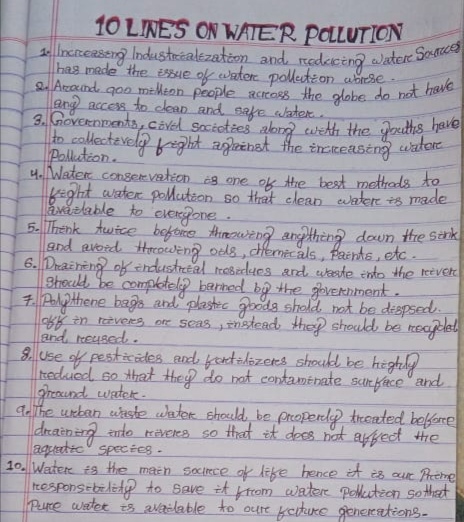 10 LINES ON WATER POLLUTION
1. Increasing Industrialization and reducing water Sources
has made the issue of water pollution worse.
2. Around 900 million people across the globe do not have
any access to clean and safe water.
3. Governments, civil societies along with the youths have
to collectively fight against the increasing water
Pollution.
4. Water conservation is one of the best methods to
fight water pollution so that clean water is made
available to everyone.
5. Think twice before throwing anything down the sink
and avoid throwing oils, chemicals, Paints, etc.
6. Draining of industrial residues and waste into the river
should be completely banned by the government.
7. Polythene bags and plastic goods shold not be dispsed
off in rivers or seas, instead they should be recycled
and reused.
8. Use of pesticides and fertilizers should be highly
reduced so that they do not contaminate surface and
ground water.
9. The urban waste water should be properly treated before
draining into rivers so that it does not affect the
aquatic species.
10. Water is the main source of life hence it is our Prime
responsibility to save it from water pollution so that
Pure water is available to our future generations.